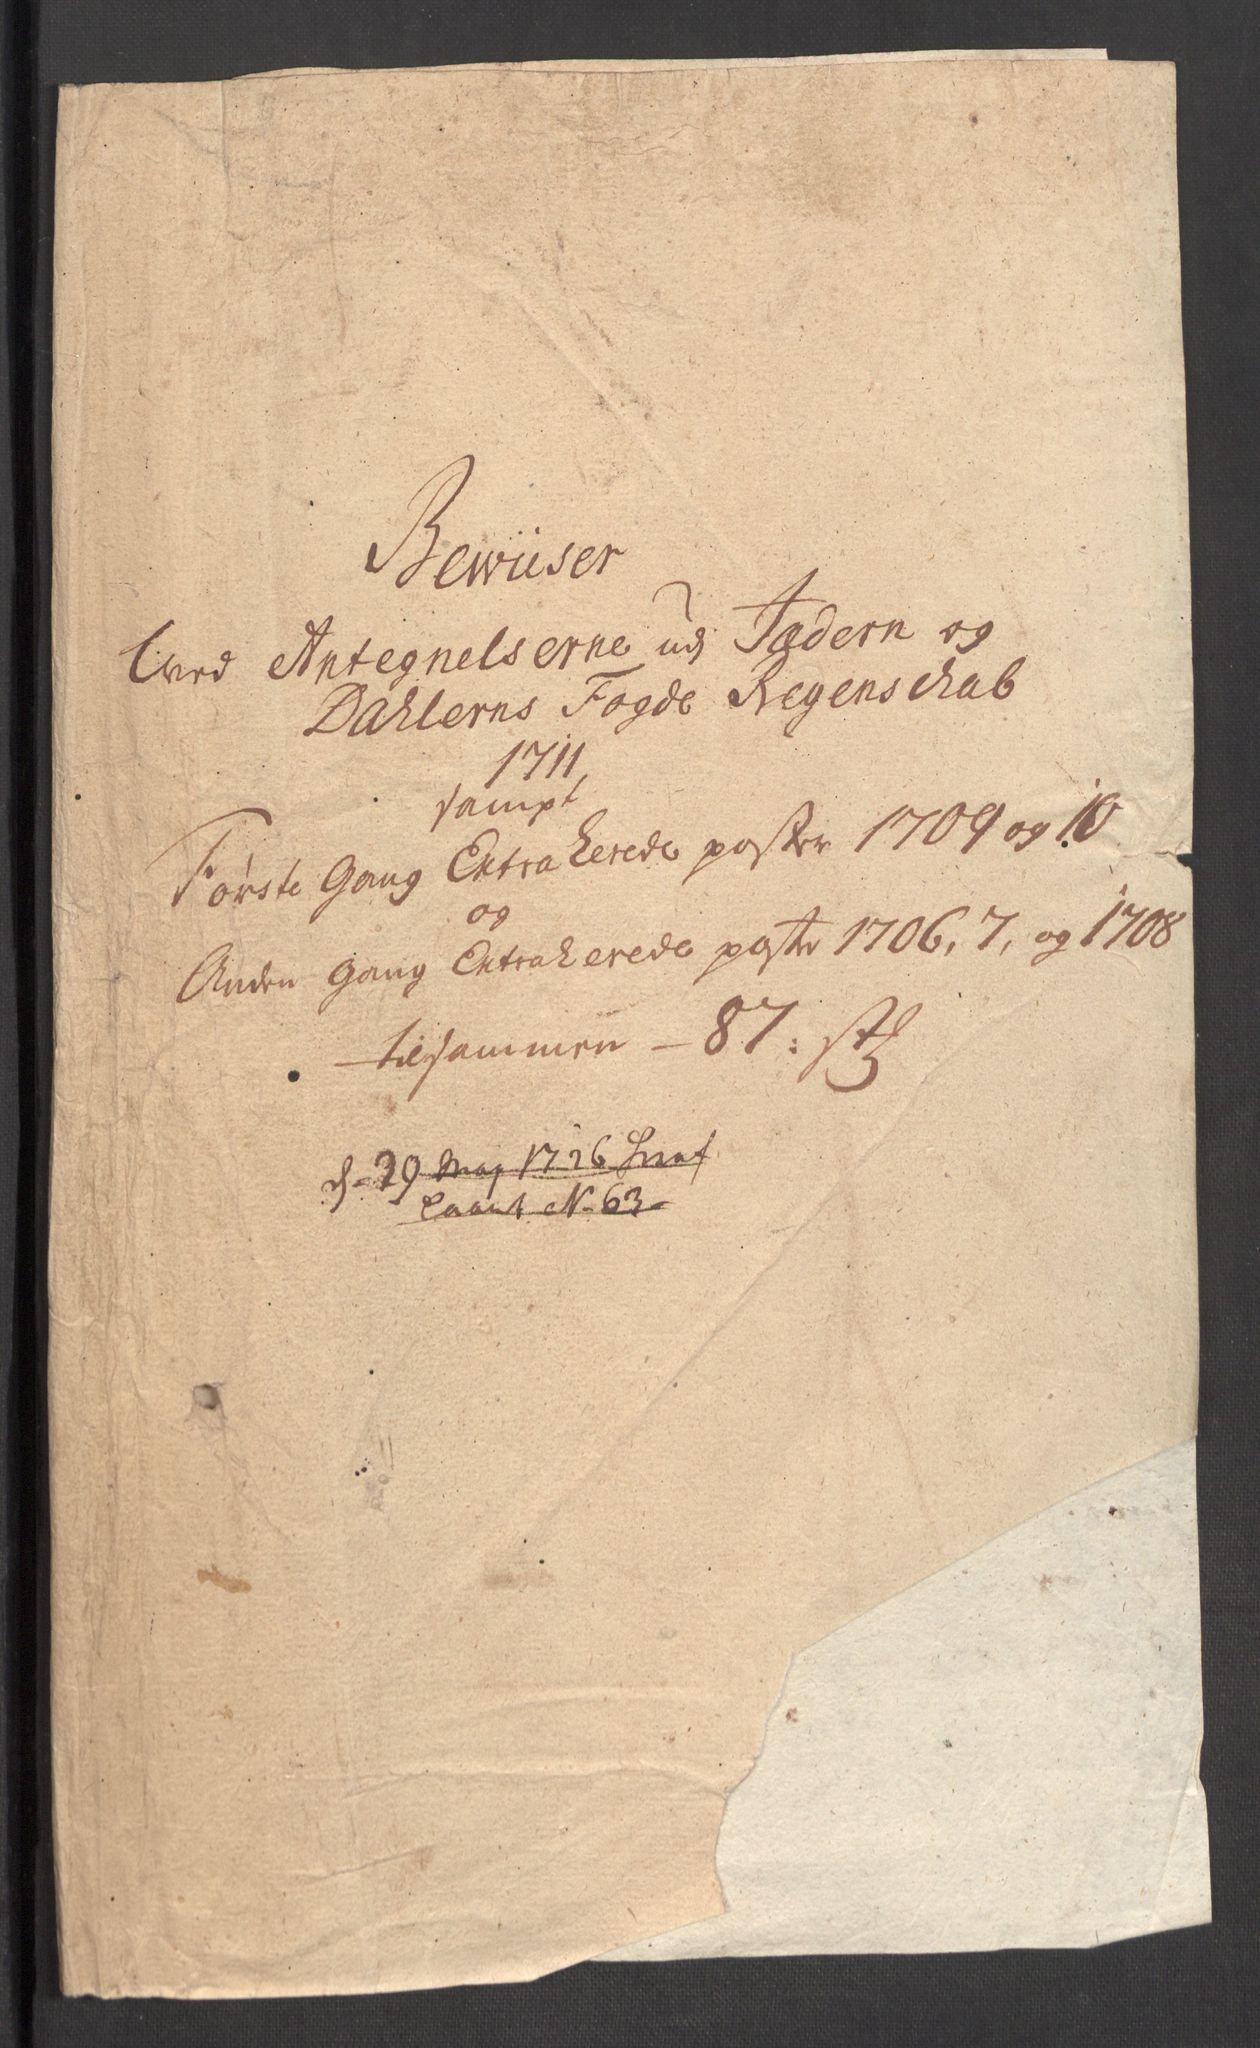 Bewiiser
Ved Antegnelserne udj Jædern og
Dahlerns Fogde Regenschab
1711
sampt
Første Gang Extraherede poster 1709 og 10
og
Anden Gang Extraherede poster 1706, 7, og 1708
tilsammen – 87: st
d. 29 May 1726
No. 63